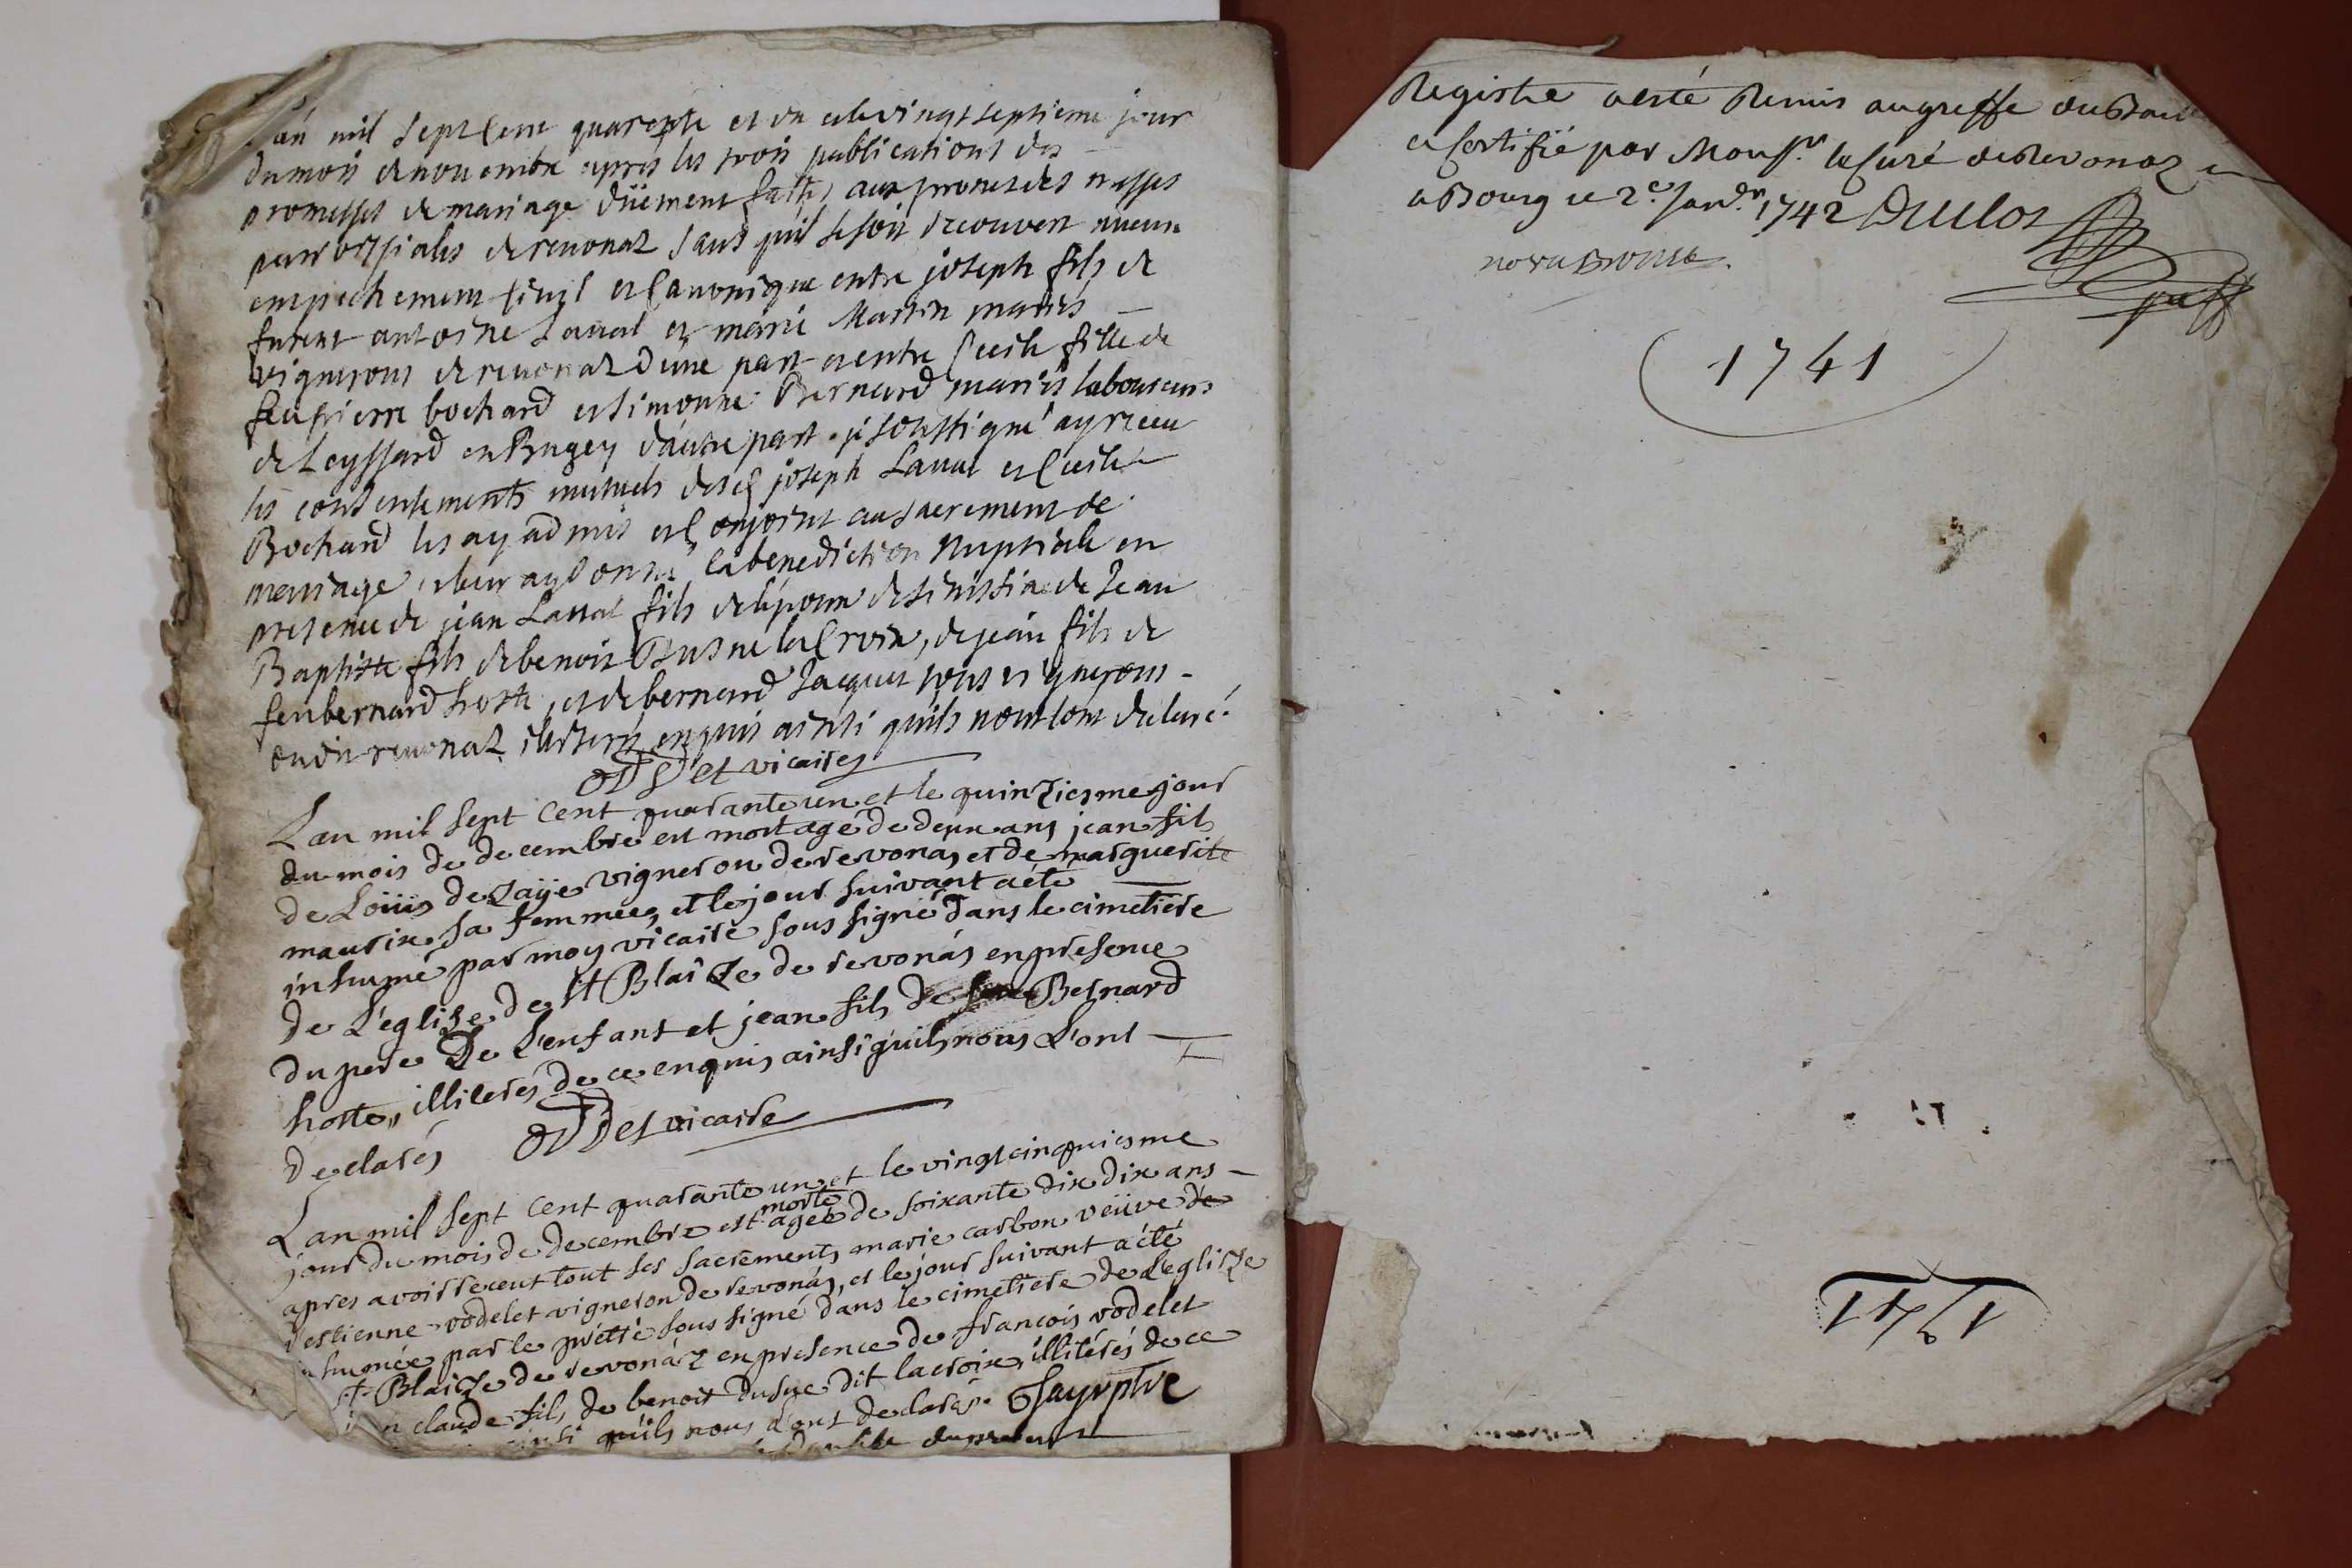 an mil sept cent quarente et un et le vingt septieme jour
du mois de novembre apres les trois publications des
promesses de mariage düement faites aux prones des messes
parroissiales de revonaz sans quil se soit decouvert aucun
empechement civil et canonique entre joseph fils de
furent antoine Laval et marie Martin mariés
vignerons de revonaz d'une part et entre Cecile fille de
feu pierre bochard et simonne Bernard mariés laboureurs
de Leyssard en Bugey d'autre part je soussigné ay receu
les consentements mutuels desd joseph Laval et Cecile
Bochard les ay admis et conjoint au sacrement de
mariage et leur ay donné la benediction Nuptiale en
presence de jean Laval fils de Jean
Baptiste fils de benoit Dusne la Croix, de jean fils de
feu bernard hoste, et de bernard Jacquet tous vignerons
dud revonaz illiterés enquis ainsi quils nous l'ont declaré.
et vicaire
L'an mil sept cent quarante un et le quinziesme jour
du mois de decembre est mort agé de deux ans jean fils
de Loüis deLaÿe vigneron de revonas et de marguerite
maurix sa femme, et le jour suivant a été
inhumé par moy vicaire sous signé dans le cimetiere
de L'eglise de st Blaize de revonás en presence
du pere De L'enfant et jean fils de feu Bernard
hoste, illiterés de ce enquis ainsi quils nous L'ont
declarés et vicaire
L'an mil sept cent quarante un et le vingt cinquiesme
jour du mois de decembre est morte ageé de soixante dix dix ans
apres avoir receut tout ses sacrements marie carbon veüve de
d'estienne vodelet vigneron de revonás, et le jour suivant a été
inhumée par le prêtre sous signé dans le cimetiere de L'eglize
st Blaize de revonáz en presence de francois vodelet
claude fils de benoit dusne dit lacroix, illiterés de ce
ainsi quils nous l'ont declarés.
Registre a esté Remis au greffe du
et certifié par Monsr. le Curé de Revonaz
a Bourg ce 2e. Janvr. 1742
1741
1741